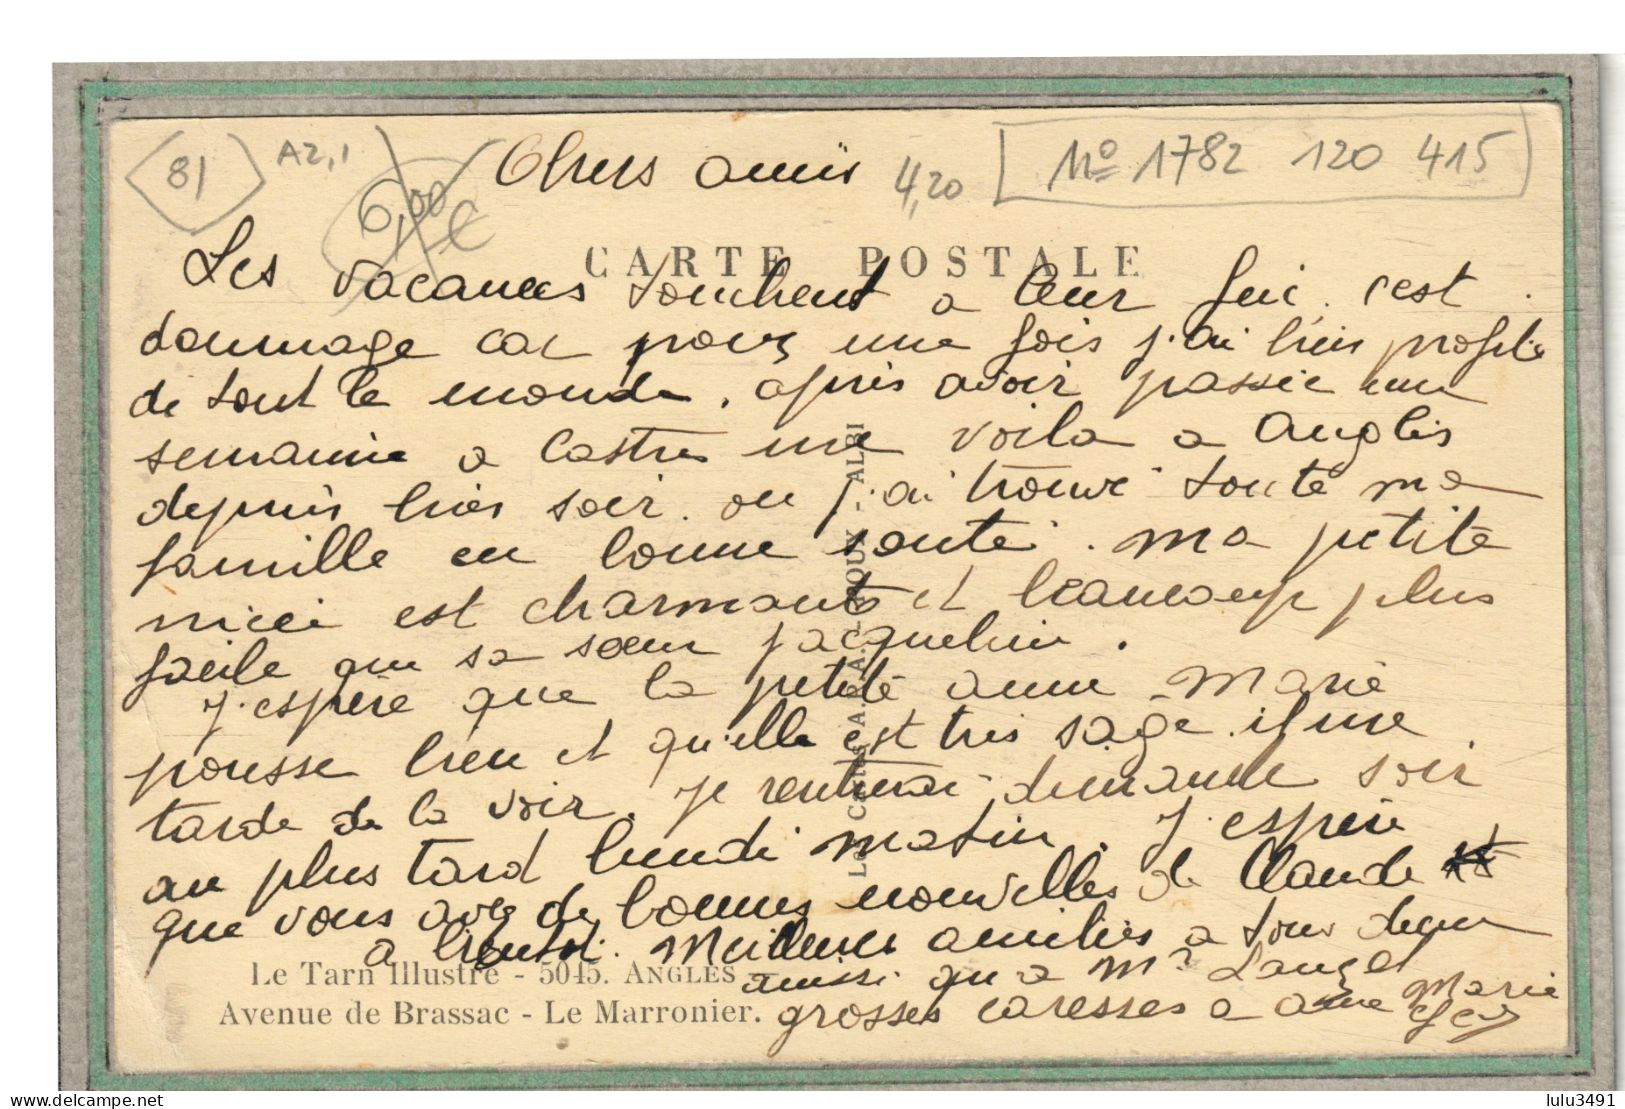 81
A2,1
6,00 €
Chers amis
4,20
No 1782 120 415
CARTE POSTALE
Les vacances touchent a leur fin, c'est
dommage car pour une fois j'ai bien profité
de tout le monde. après avoir passée une
semaine a Castres me voila a Anglès
depuis hier soir. ou j'ai trouvé toute ma
famille en bonne santé. ma petite
nièce est charmante et beaucoup plus
facile que sa soeur Jacqueline.
J'espère que la petite anne Marie
pousse bien et qu'elle est très sage. il me
tarde de la voir. Je rentrerai dimanche soir
au plus tard lundi matin. J'espère
que vous avez de bonnes nouvelles de Claude
a bientot. Meilleures amitiés a tous deux
aussi qu'a Mr
grosses caresses a anne Marie
Le Tarn Illustré - 5045. ANGLÈS
Avenue de Brassac - Le Marronier.
ALBI
delcampe.net
lulu3491